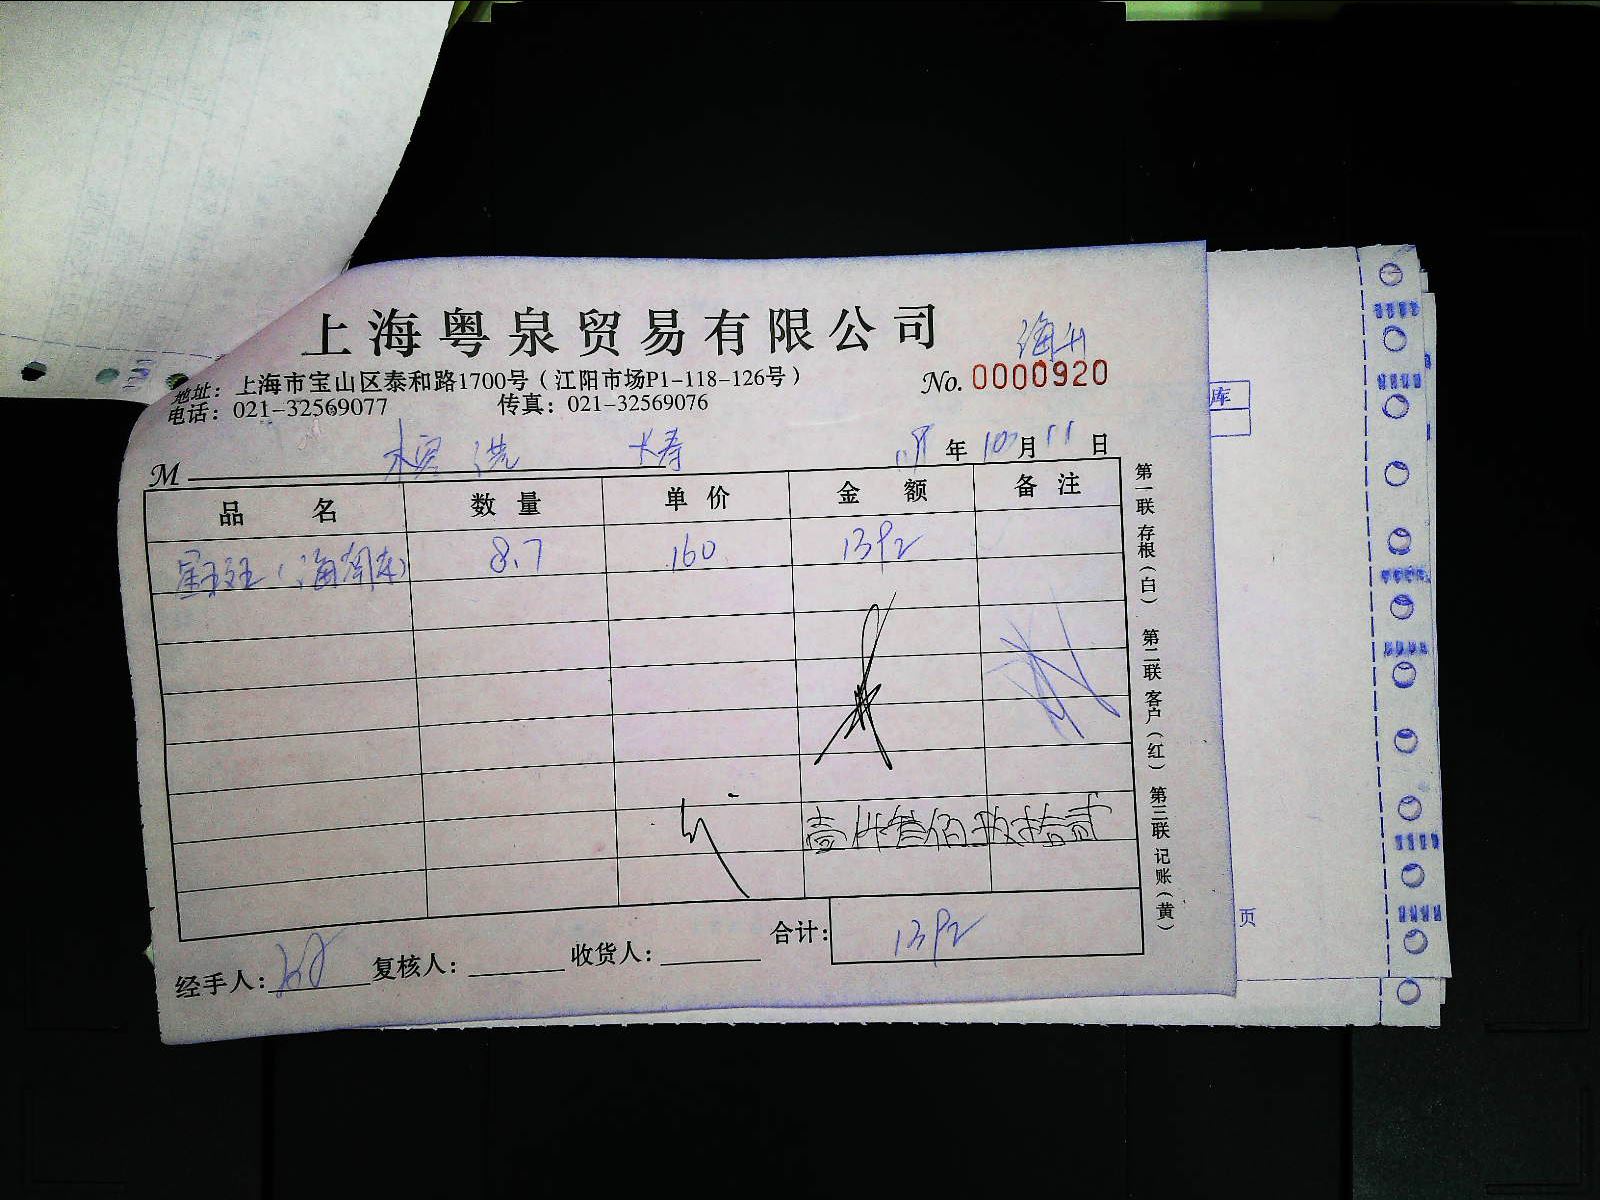 上海粤泉贸易有限公司
地址：上海市宝山区泰和路1700号（江阳市场P1-118-126号）
No. 0000920
电话：021-32569077 传真：021-32569076
M
年 10 月 11 日
品名 数量 单价 金额 备注
8.7 160 1392
壹仟叁佰玖拾贰
合计： 1392
经手人： 复核人： 收货人：
第一联 存根（白） 第二联 客户（红） 第三联 记账（黄）
库
页